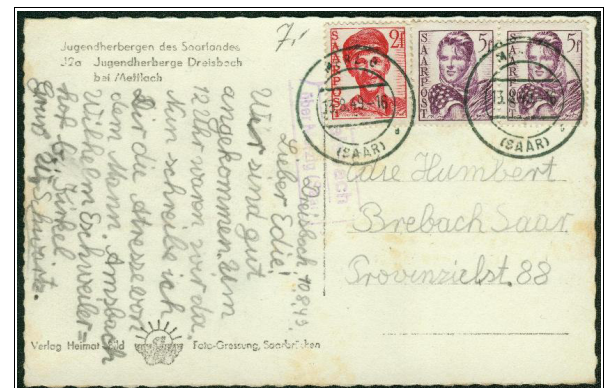 Jugendherbergen des Saarlandes
J2a Jugendherberge Dreisbach
bei Mettlach
7,-
2f
SAARPOST
5f
SAARPOST
5f
SAARPOST
(SAAR)
(SAAR)
Dreisbach 10.8.49.
Lieber Edie!
Wir sind gut
angekommen. Um
12 Uhr waren wir da.
Nun schreibe ich
dir die Adresse von
dem Henn. Arnsbach
Wilhelm Eschweiler=
hof b/ Kirkel.
Gruß Schwarz.
Edie Humbert
Brebach Saar
Provinzialst. 88
Verlag Heimat-Bild
Foto-Gressung, Saarbrücken